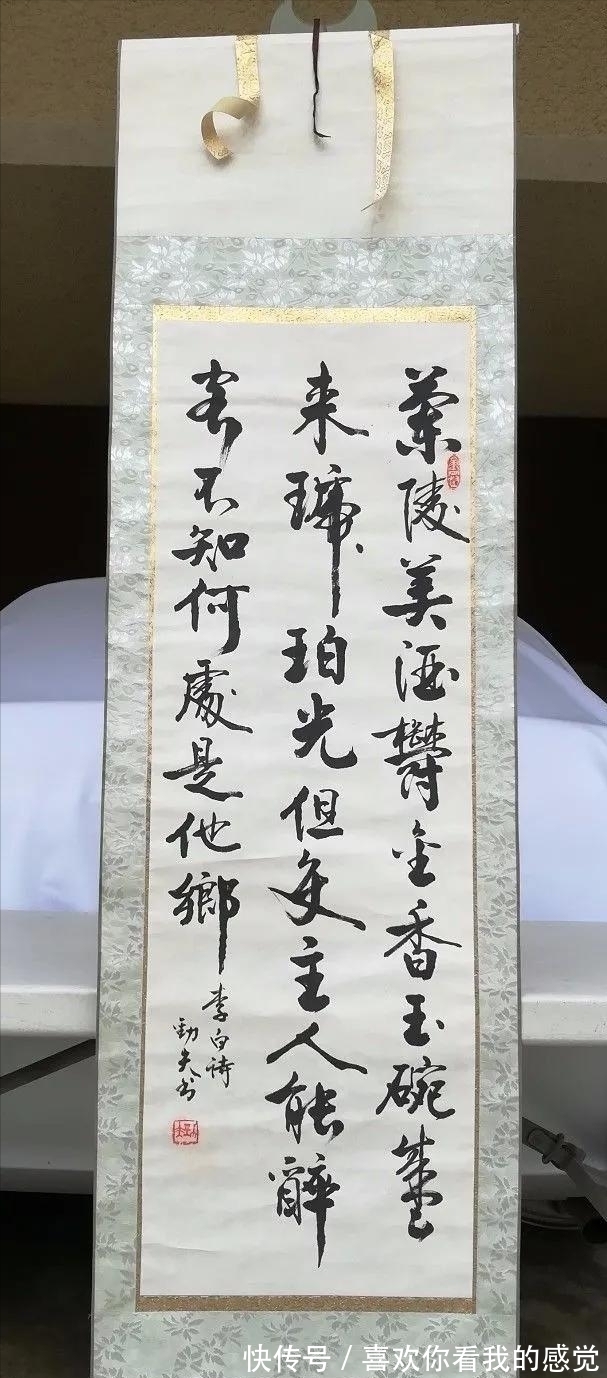 蘭陵美酒鬱金香玉碗盛
来琥珀光但使主人能醉
客不知何處是他鄉
李白詩
勁夫书
快传号 / 喜欢你看我的感觉